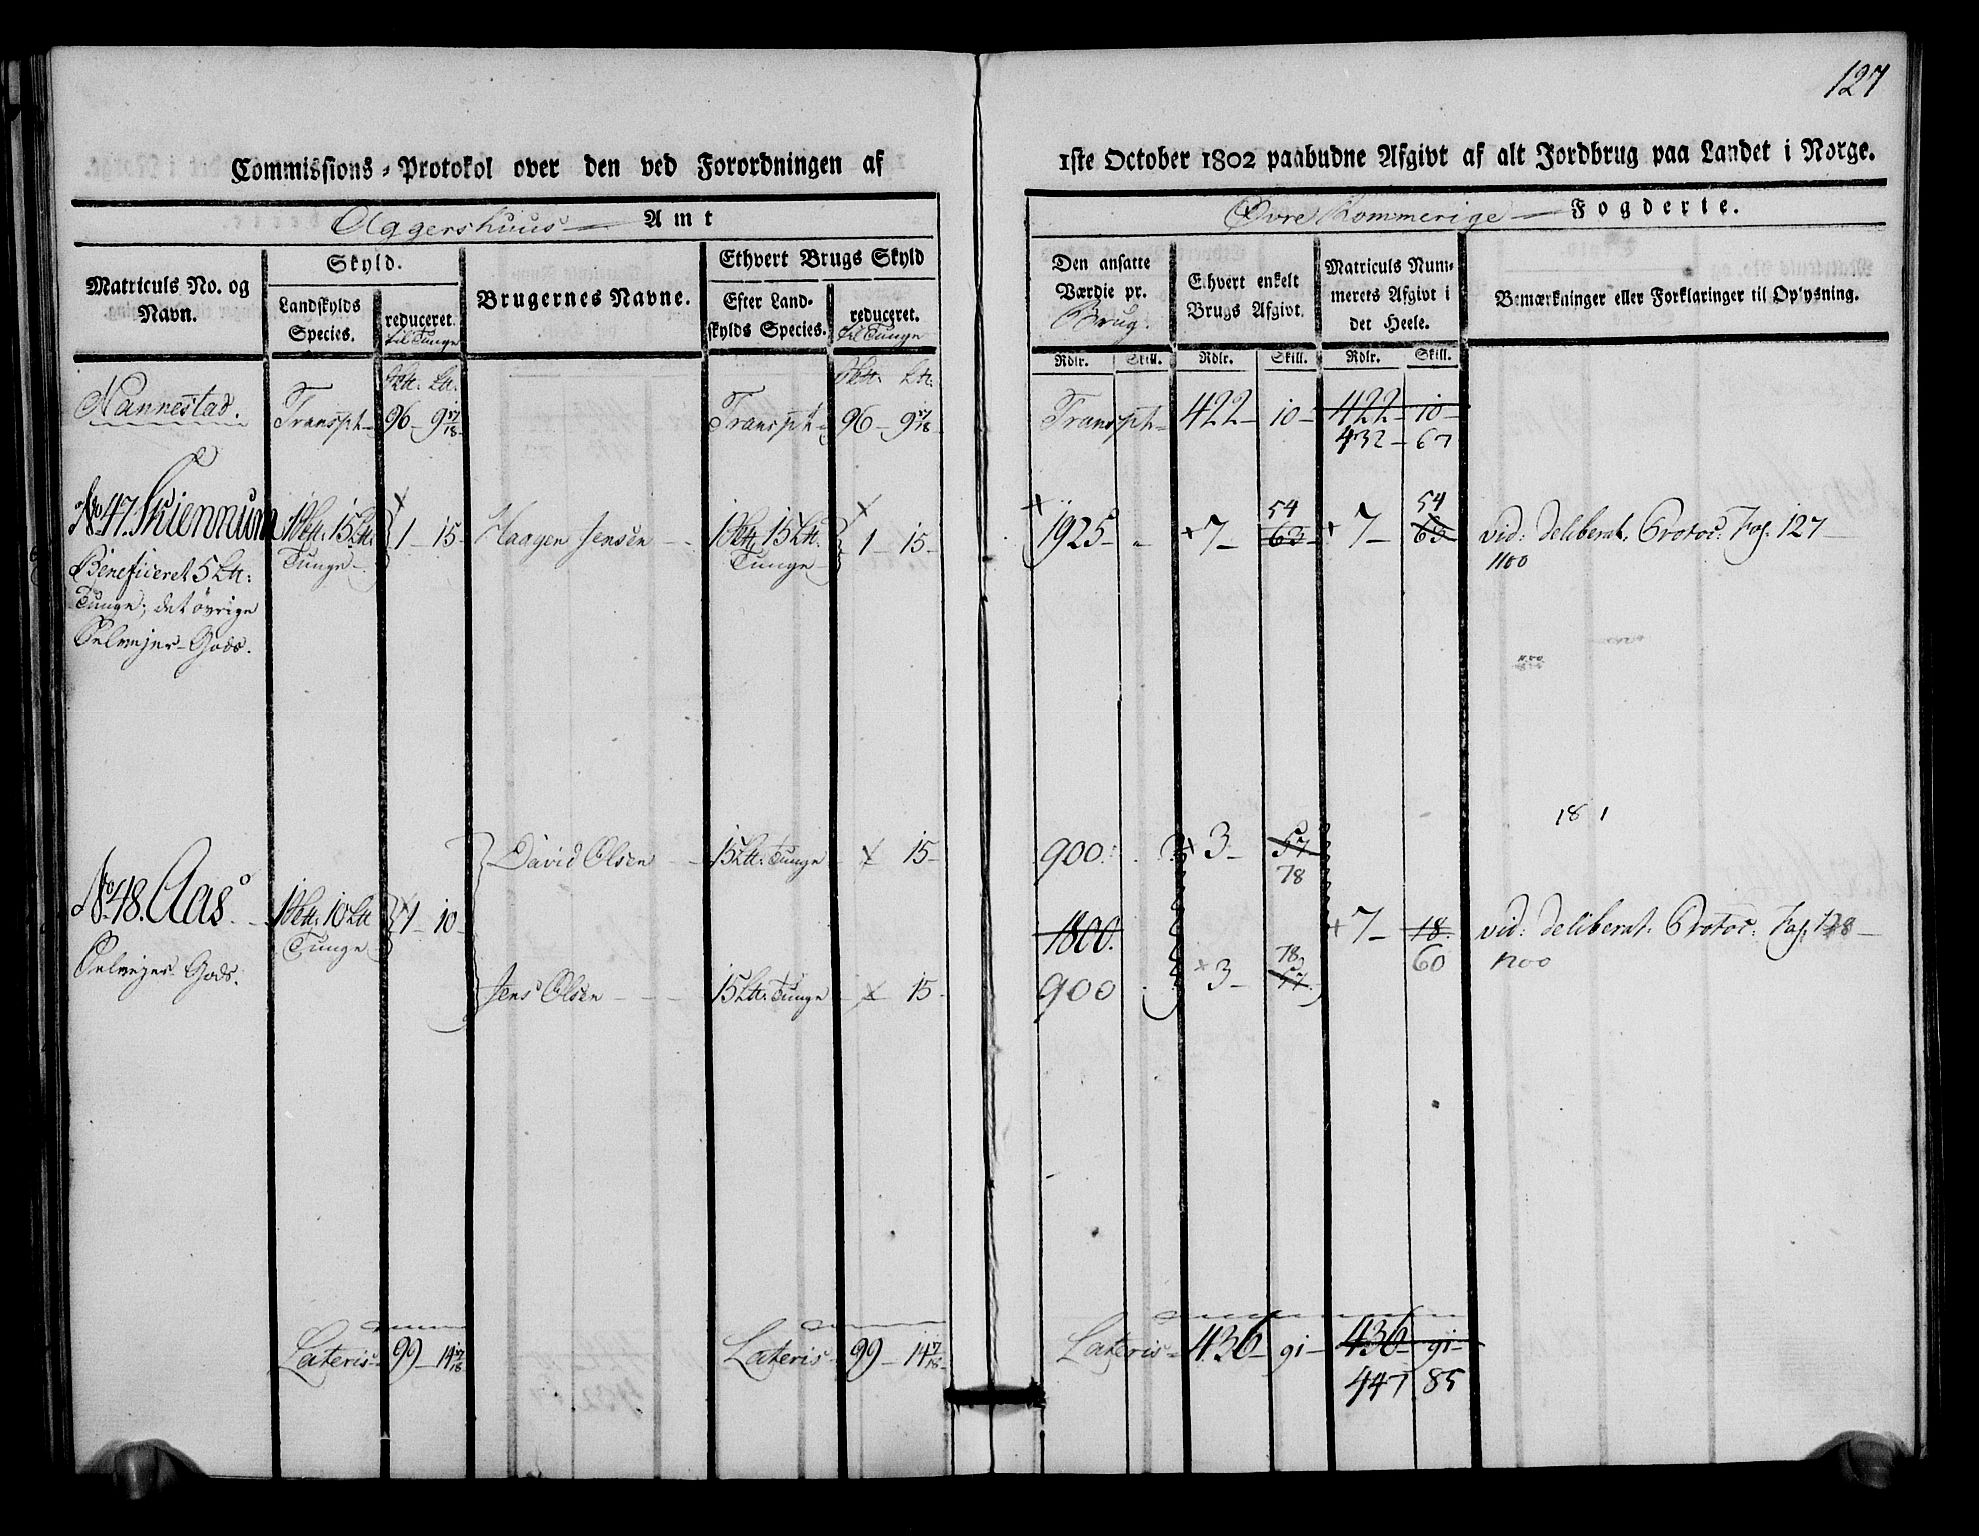 127
Commissions-Protokol over den ved Forordningen af
1ste October 1802 paabudne Afgivt af alt Jordbrug paa Landet i Norge.
Aggershuus Amt
Øvre Rommerige Fogderie.
Matriculs No. og Navn.
Skyld.
Landskylds Species.
reduceret.
til Tunge
Brugernes Navne.
Ethvert Brugs Skyld
Efter Landskylds Species.
reduceret.
til Tunge
Den ansatte Værdie pr.
Brug.
Ethvert enkelt Brugs Afgivt.
Matriculs Nummerets Afgivt i det Heele.
Bemærkninger eller Forklaringer til Oplysning.
Rdlr. Skill. Rdlr. Skill. Rdlr. Skill.
Nannestad. Transpt 96 - 9 17/18 Transpt 96 - 9 17/18 Transpt 422 - 10 - 422 - 10 -
432 - 67
54 54
No. 47. Skiennum 15 Ltt. 1 - 15 - Haagen Jensen - 15 Ltt. 1 - 15 - 1925 - 7 - 63 - 7 - 63 vid: deliberat. Protoc: Fol. 127
Tunge Tunge 1100
Beneficeret 5 Ltt:
Tunge; det øvrige
Selveyer-Gods.
18 1
David Olsen - 15 Ltt: Tunge 15 - 900. 3 - 57
78
No. 48. Aas. 10 Ltt 1 - 10 - 1800. 7 - 18. vid: deliberat. Protoc: Fol. 128
Tunge 60
Selveyer Gods. 78
Jens Olsen - - - 15 Ltt: Tunge 15 - 900 3 - 57.
Lateris 99 - 14 17/18 Lateris 99 - 14 17/18 Lateris 436 - 91 - 436 - 91 -
447. 85